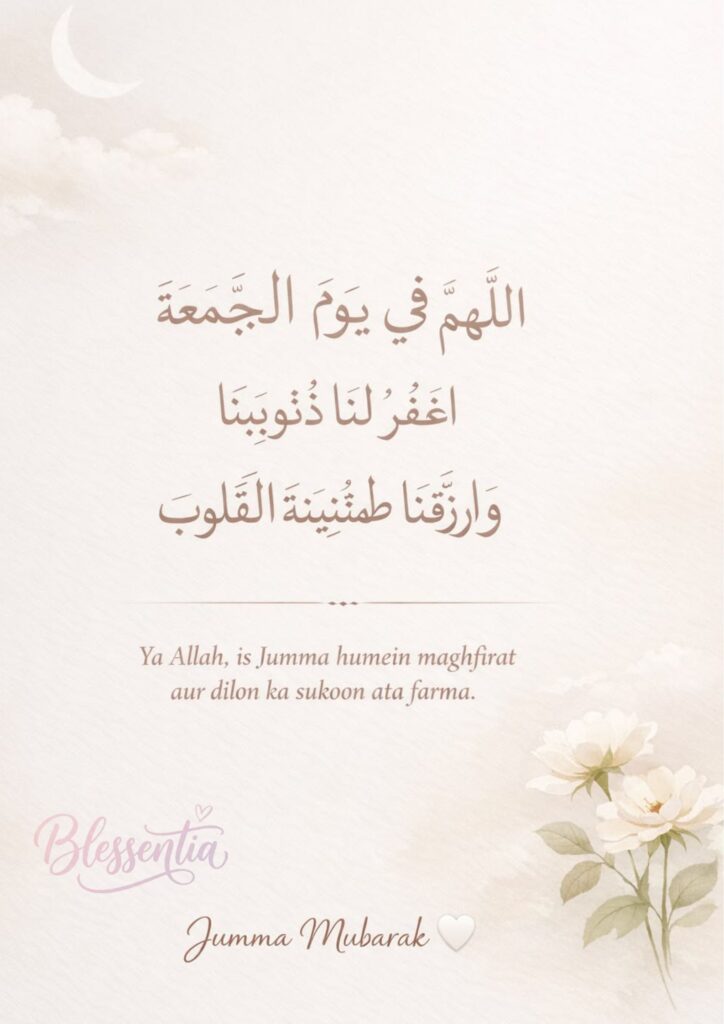 اللَّهمَّ في يَوَمَ الجَّمَعَةَ
اغَفُرُ لنَا ذُتوبَبِنَا
وَارزَّقنَا طمتُنِيَنةَ القَلوبَ
Ya Allah, is Jumma humein maghfirat
aur dilon ka sukoon ata farma.
Blessentia
Jumma Mubarak 🤍